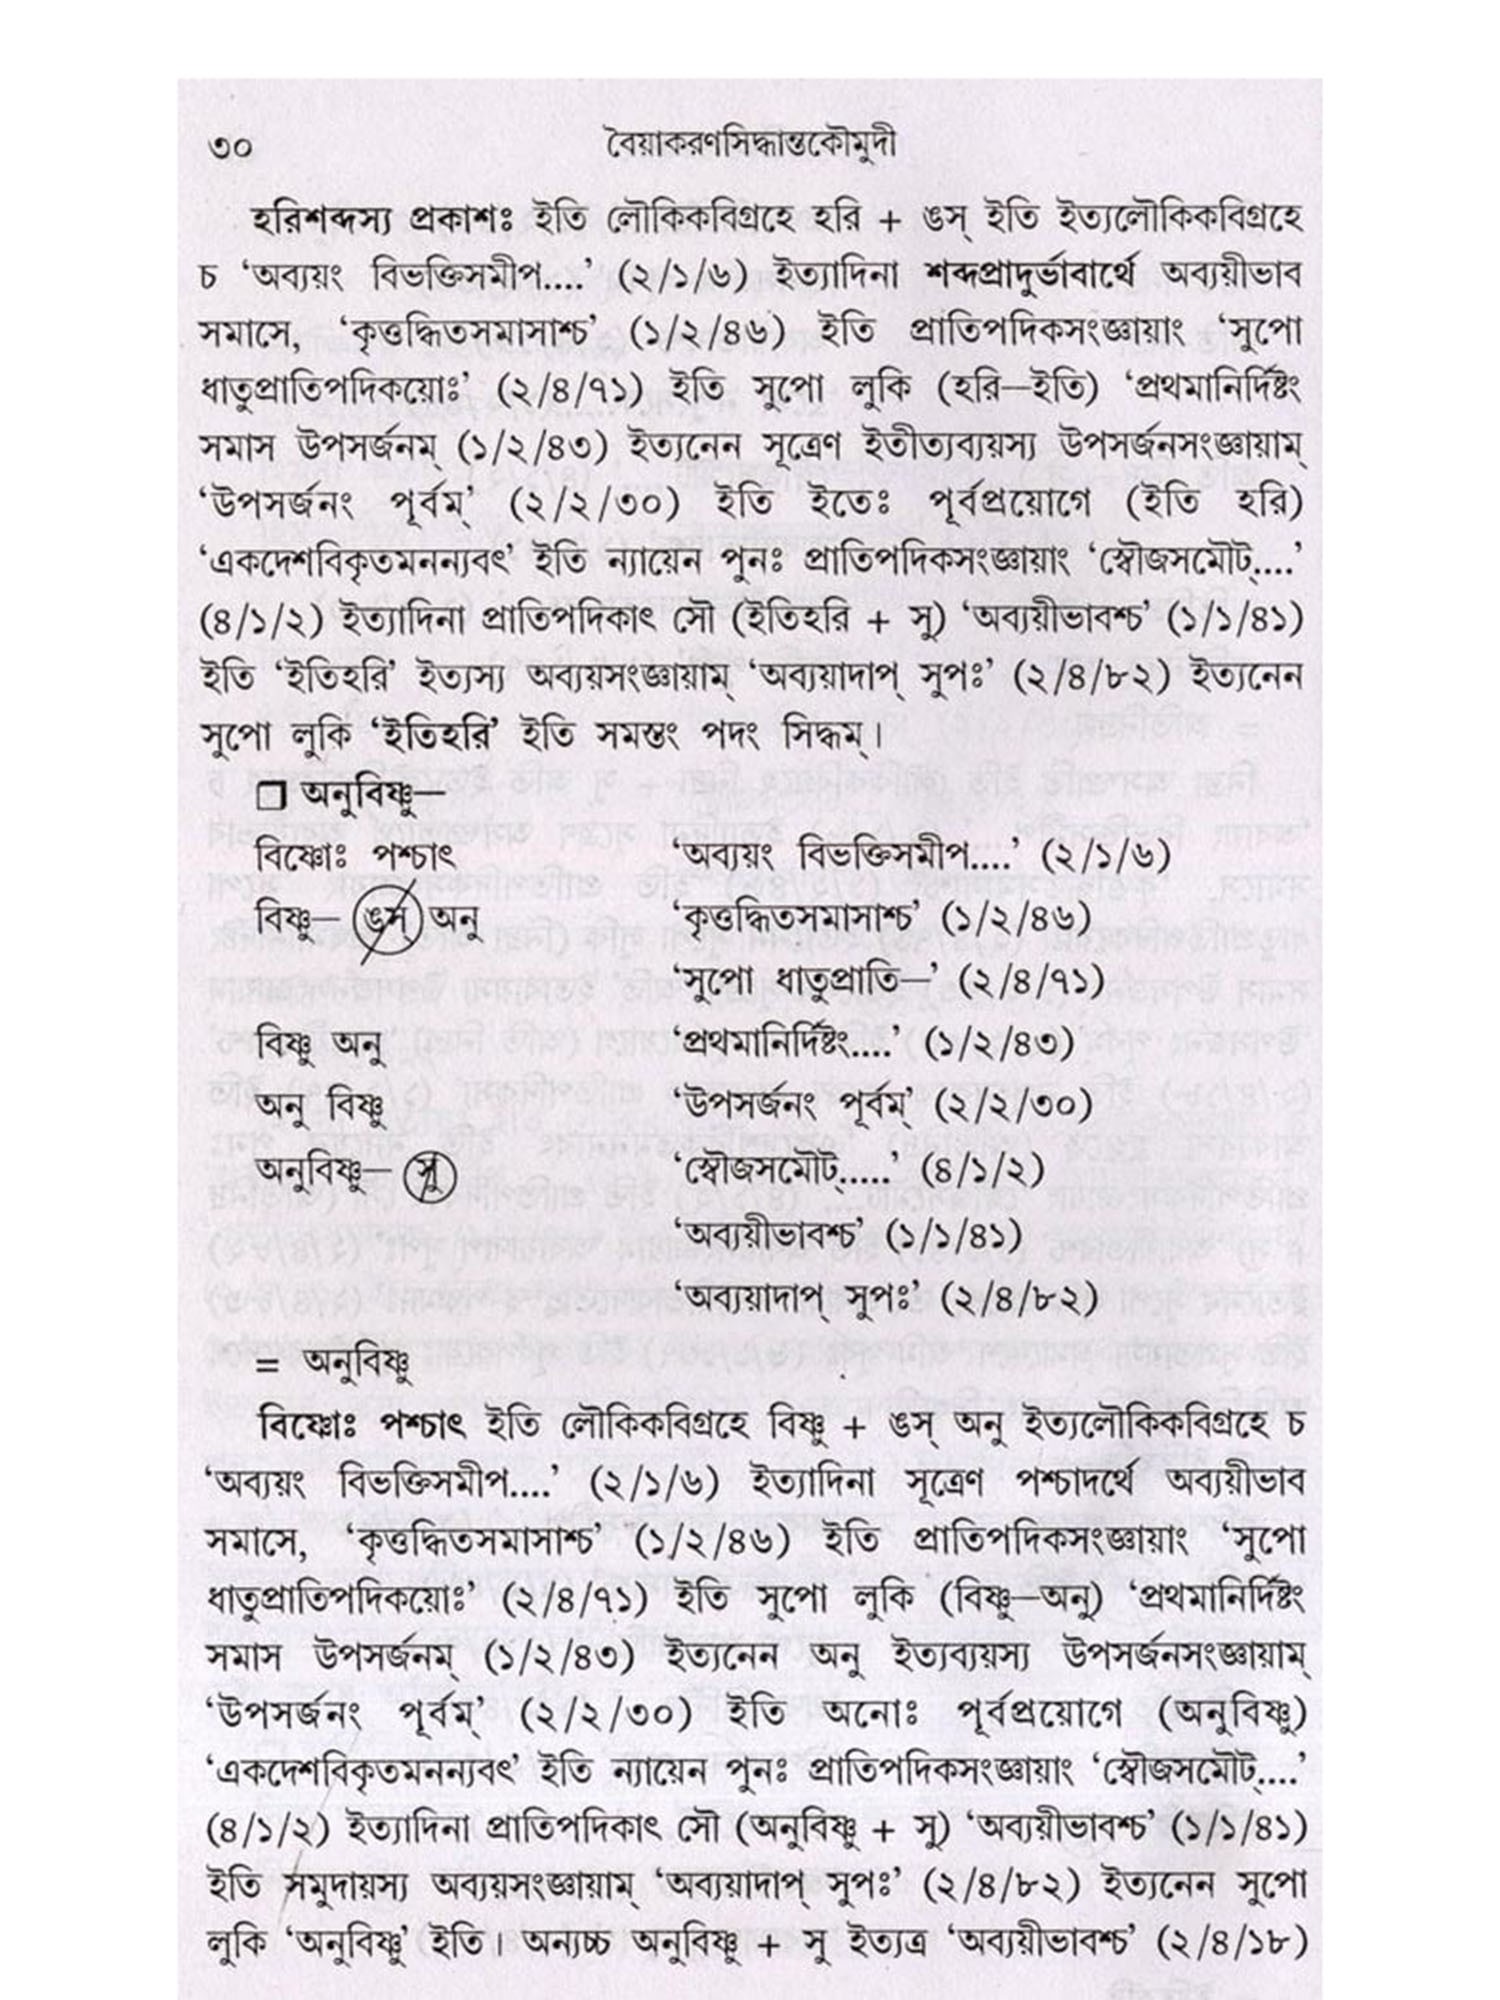 ৩০ বৈয়াকরণসিদ্ধান্তকৌমুদী
হরিশব্দস্য প্রকাশঃ ইতি লৌকিকবিগ্রহে হরি + ঙস্ ইতি ইত্যলৌকিকবিগ্রহে
চ ‘অব্যয়ং বিভক্তিসমীপ....’ (২/১/৬) ইত্যাদিনা শব্দপ্রাদুর্ভাবার্থে অব্যয়ীভাব
সমাসে, ‘কৃত্তদ্ধিতসমাসাশ্চ’ (১/২/৪৬) ইতি প্রাতিপদিকসংজ্ঞায়াং ‘সুপো
ধাতুপ্রাতিপদিকয়োঃ’ (২/৪/৭১) ইতি সুপো লুকি (হরি—ইতি) ‘প্রথমানির্দিষ্টং
সমাস উপসর্জনম্ (১/২/৪৩) ইত্যনেন সূত্রেণ ইতীত্যব্যয়স্য উপসর্জনসংজ্ঞায়াম্
‘উপসর্জনং পূর্বম্’ (২/২/৩০) ইতি ইতেঃ পূর্বপ্রয়োগে (ইতি হরি)
‘একদেশবিকৃতমনন্যবৎ’ ইতি ন্যায়েন পুনঃ প্রাতিপদিকসংজ্ঞায়াং ‘স্বৌজসমৌট্....’
(৪/১/২) ইত্যাদিনা প্রাতিপদিকাৎ সৌ (ইতিহরি + সু) ‘অব্যয়ীভাবশ্চ’ (১/১/৪১)
ইতি ‘ইতিহরি’ ইত্যস্য অব্যয়সংজ্ঞায়াম্ ‘অব্যয়াদাপ্ সুপঃ’ (২/৪/৮২) ইত্যনেন
সুপো লুকি ‘ইতিহরি’ ইতি সমস্তং পদং সিদ্ধম্।
❒ অনুবিষ্ণু—
বিষ্ণোঃ পশ্চাৎ ‘অব্যয়ং বিভক্তিসমীপ....’ (২/১/৬)
বিষ্ণু— ঙস্ অনু ‘কৃত্তদ্ধিতসমাসাশ্চ’ (১/২/৪৬)
‘সুপো ধাতুপ্রাতি—’ (২/৪/৭১)
বিষ্ণু অনু ‘প্রথমানির্দিষ্টং....’ (১/২/৪৩)
অনু বিষ্ণু ‘উপসর্জনং পূর্বম্’ (২/২/৩০)
অনুবিষ্ণু— সু ‘স্বৌজসমৌট্.....’ (৪/১/২)
‘অব্যয়ীভাবশ্চ’ (১/১/৪১)
‘অব্যয়াদাপ্ সুপঃ’ (২/৪/৮২)
= অনুবিষ্ণু
বিষ্ণোঃ পশ্চাৎ ইতি লৌকিকবিগ্রহে বিষ্ণু + ঙস্ অনু ইত্যলৌকিকবিগ্রহে চ
‘অব্যয়ং বিভক্তিসমীপ....’ (২/১/৬) ইত্যাদিনা সূত্রেণ পশ্চাদর্থে অব্যয়ীভাব
সমাসে, ‘কৃত্তদ্ধিতসমাসাশ্চ’ (১/২/৪৬) ইতি প্রাতিপদিকসংজ্ঞায়াং ‘সুপো
ধাতুপ্রাতিপদিকয়োঃ’ (২/৪/৭১) ইতি সুপো লুকি (বিষ্ণু—অনু) ‘প্রথমানির্দিষ্টং
সমাস উপসর্জনম্ (১/২/৪৩) ইত্যনেন অনু ইত্যব্যয়স্য উপসর্জনসংজ্ঞায়াম্
‘উপসর্জনং পূর্বম্’ (২/২/৩০) ইতি অনোঃ পূর্বপ্রয়োগে (অনুবিষ্ণু)
‘একদেশবিকৃতমনন্যবৎ’ ইতি ন্যায়েন পুনঃ প্রাতিপদিকসংজ্ঞায়াং ‘স্বৌজসমৌট্....’
(৪/১/২) ইত্যাদিনা প্রাতিপদিকাৎ সৌ (অনুবিষ্ণু + সু) ‘অব্যয়ীভাবশ্চ’ (১/১/৪১)
ইতি সমুদায়স্য অব্যয়সংজ্ঞায়াম্ ‘অব্যয়াদাপ্ সুপঃ’ (২/৪/৮২) ইত্যনেন সুপো
লুকি ‘অনুবিষ্ণু’ ইতি। অন্যচ্চ অনুবিষ্ণু + সু ইত্যত্র ‘অব্যয়ীভাবশ্চ’ (২/৪/১৮)